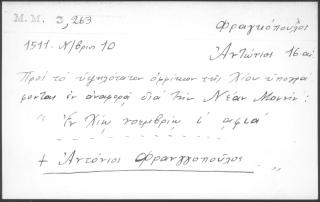 M.M. 3,263
Φραγκόπουλος
1511. Ν/βριο 10
Ἀντώνιος 16 αἰ.
Πρὸς τὸ ὑψηλότατον ὀφφίκιον τῆς Χίου ὑπογρά
φονται ἐν ἀναφορᾷ διὰ τὴν Νέαν Μονήν:
" Ἐν Χίῳ νοεμβρίῳ ι΄ αφια΄
+ Ἀντώνιος Φρανγγόπουλος "